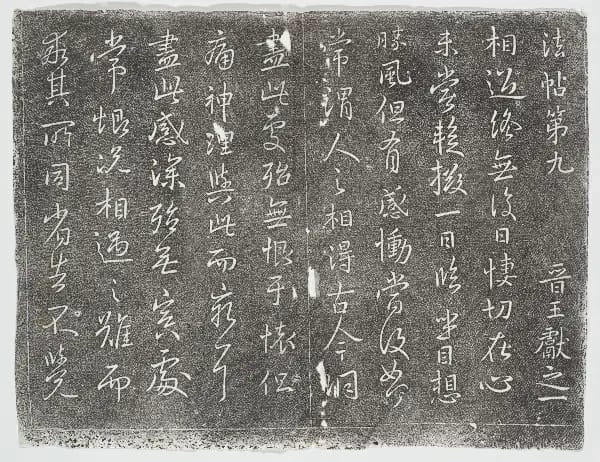 法帖第九 晉王獻之一
相過終無復日悽切在心
未嘗暫掇一日臨坐目想
勝風但有感慟當復如何
常謂人之相得古今洞
盡此處殆無恨於懷但
痛神理與此而窮耳
盡此感深殆無冥處
常恨況相遇之難而
乖其所同省告不覺